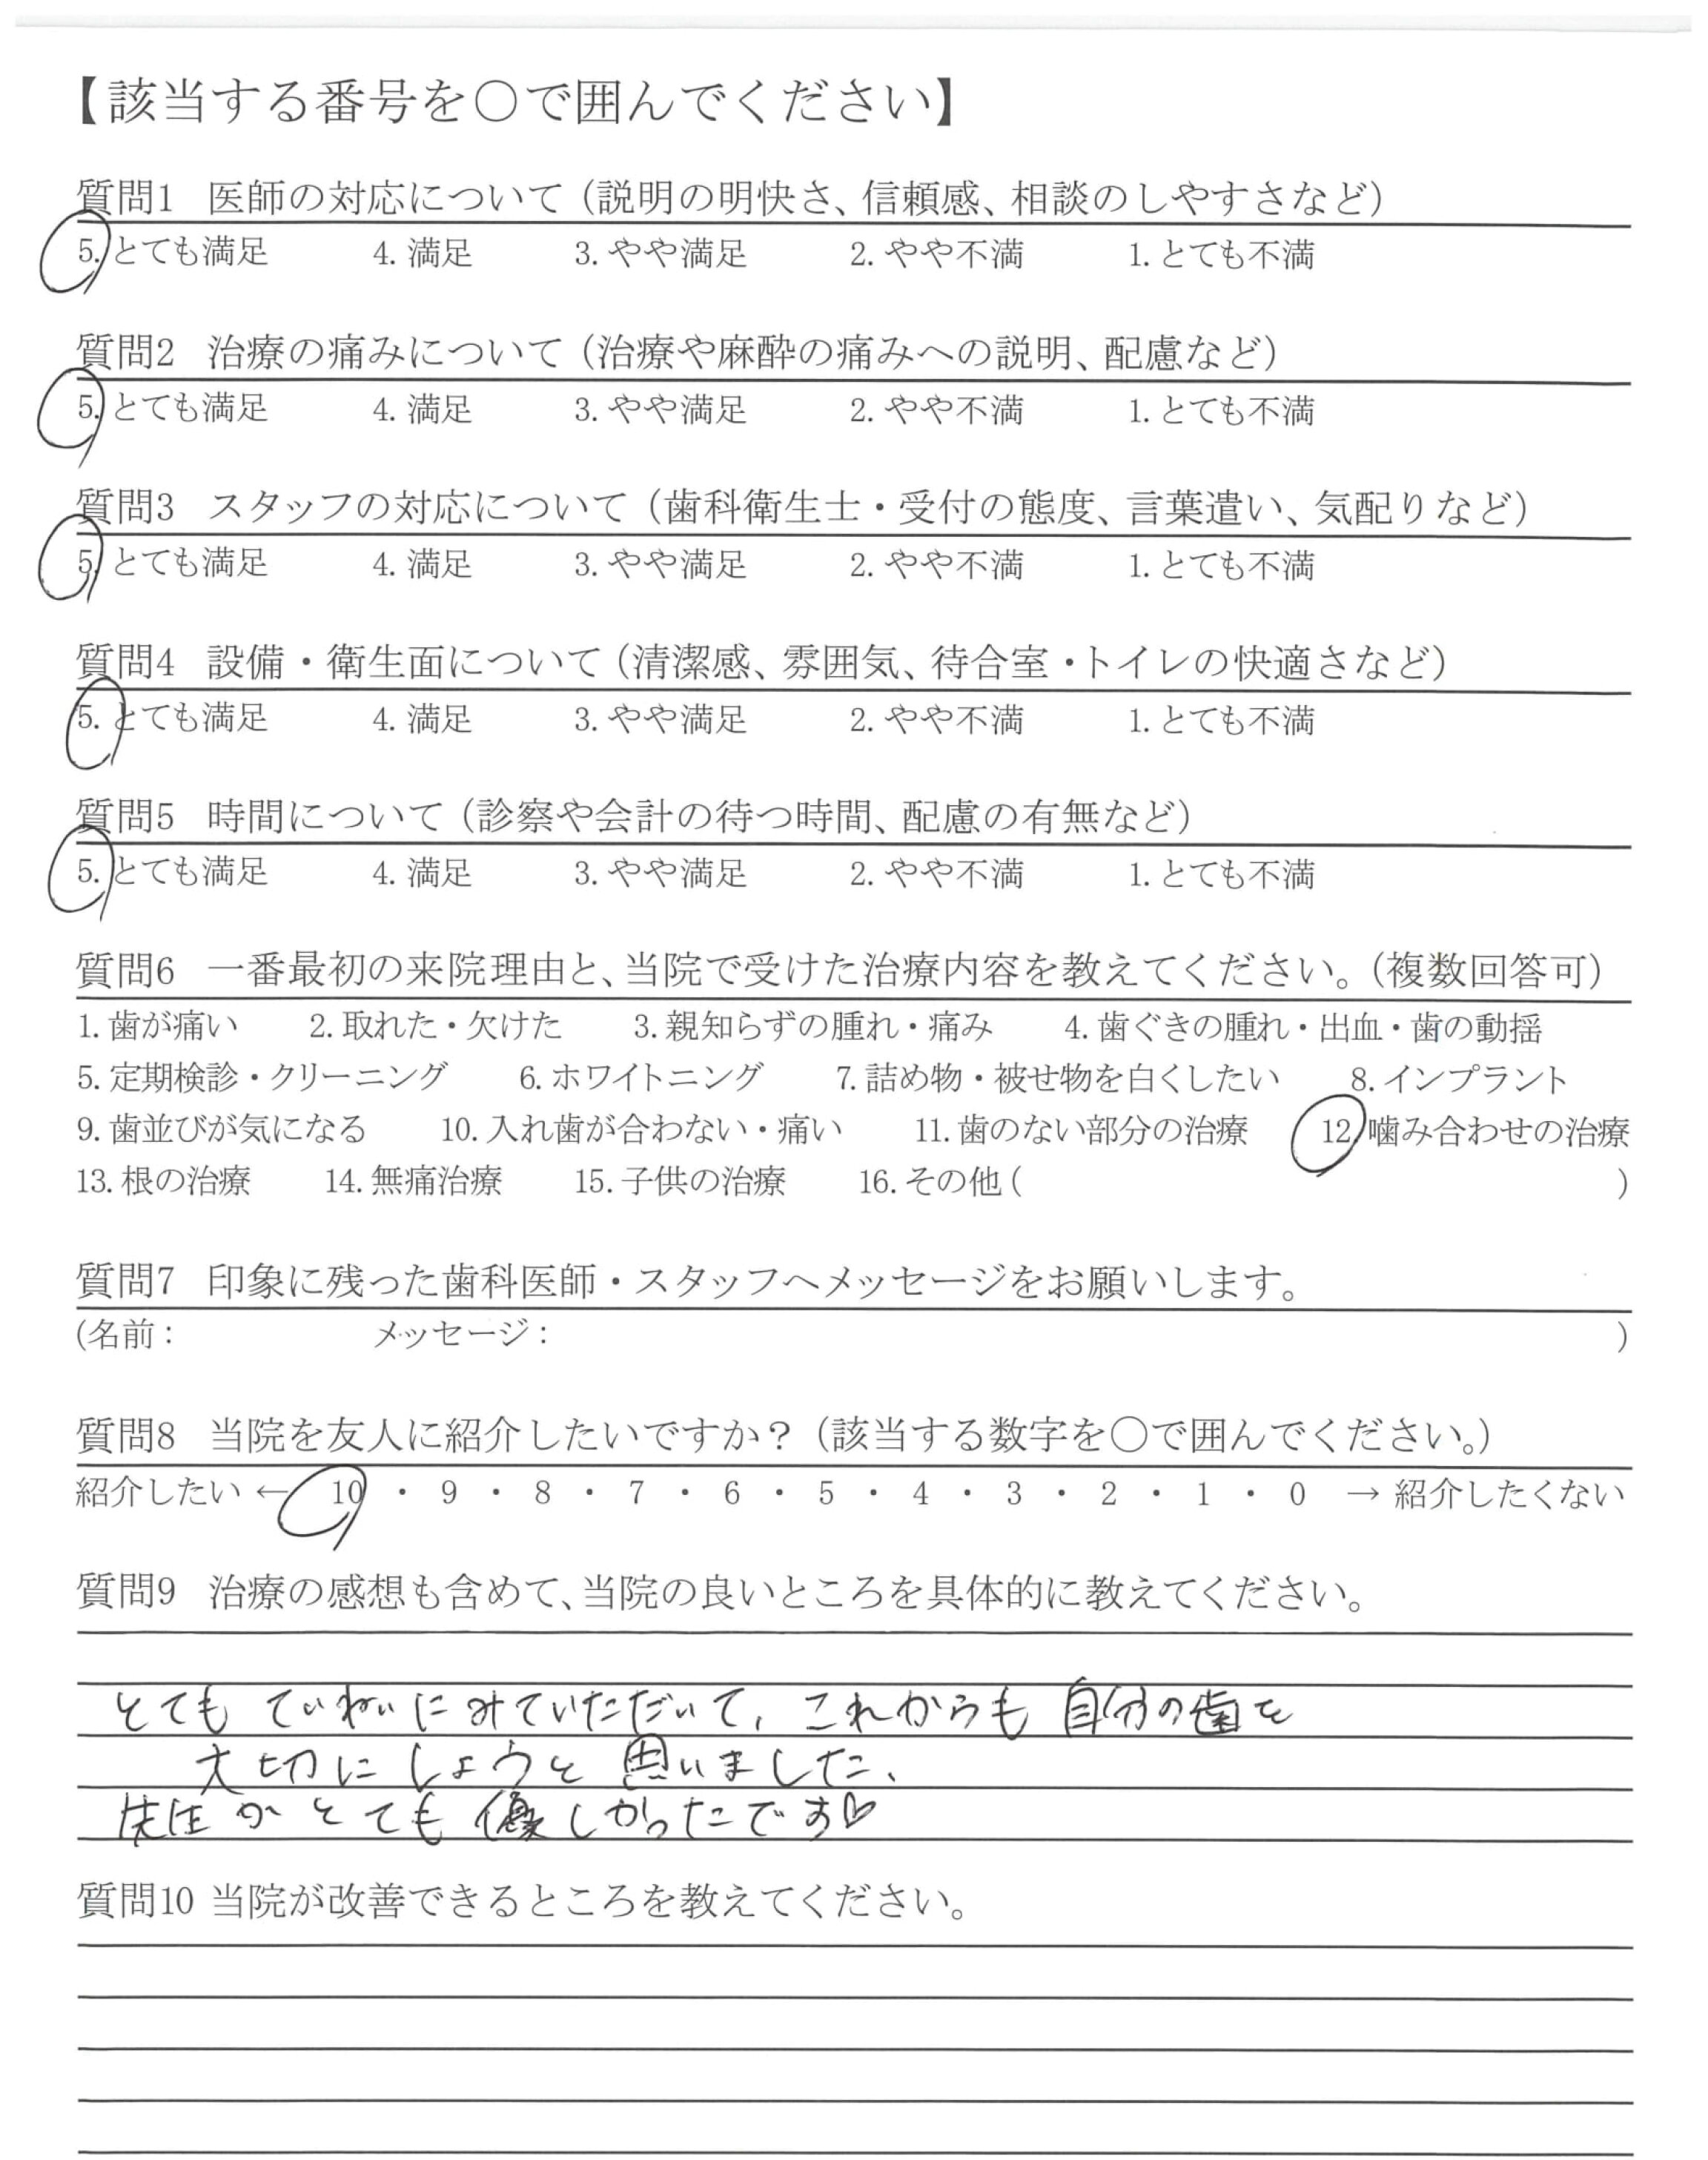 【該当する番号を〇で囲んでください】
質問1 医師の対応について（説明の明快さ、信頼感、相談のしやすさなど）
5. とても満足 4. 満足 3. やや満足 2. やや不満 1. とても不満
質問2 治療の痛みについて（治療や麻酔の痛みへの説明、配慮など）
5. とても満足 4. 満足 3. やや満足 2. やや不満 1. とても不満
質問3 スタッフの対応について（歯科衛生士・受付の態度、言葉遣い、気配りなど）
5. とても満足 4. 満足 3. やや満足 2. やや不満 1. とても不満
質問4 設備・衛生面について（清潔感、雰囲気、待合室・トイレの快適さなど）
5. とても満足 4. 満足 3. やや満足 2. やや不満 1. とても不満
質問5 時間について（診察や会計の待つ時間、配慮の有無など）
5. とても満足 4. 満足 3. やや満足 2. やや不満 1. とても不満
質問6 一番最初の来院理由と、当院で受けた治療内容を教えてください。（複数回答可）
1. 歯が痛い 2. 取れた・欠けた 3. 親知らずの腫れ・痛み 4. 歯ぐきの腫れ・出血・歯の動揺
5. 定期検診・クリーニング 6. ホワイトニング 7. 詰め物・被せ物を白くしたい 8. インプラント
9. 歯並びが気になる 10. 入れ歯が合わない・痛い 11. 歯のない部分の治療 12. 噛み合わせの治療
13. 根の治療 14. 無痛治療 15. 子供の治療 16. その他（ ）
質問7 印象に残った歯科医師・スタッフへメッセージをお願いします。
（名前： メッセージ： ）
質問8 当院を友人に紹介したいですか？（該当する数字を〇で囲んでください。）
紹介したい ← 10 ・ 9 ・ 8 ・ 7 ・ 6 ・ 5 ・ 4 ・ 3 ・ 2 ・ 1 ・ 0 → 紹介したくない
質問9 治療の感想も含めて、当院の良いところを具体的に教えてください。
とても ていねいにみていただいて、これからも 自分の歯を
大切にしようと 思いました、
先生が とても 優しかったです♡
質問10 当院が改善できるところを教えてください。